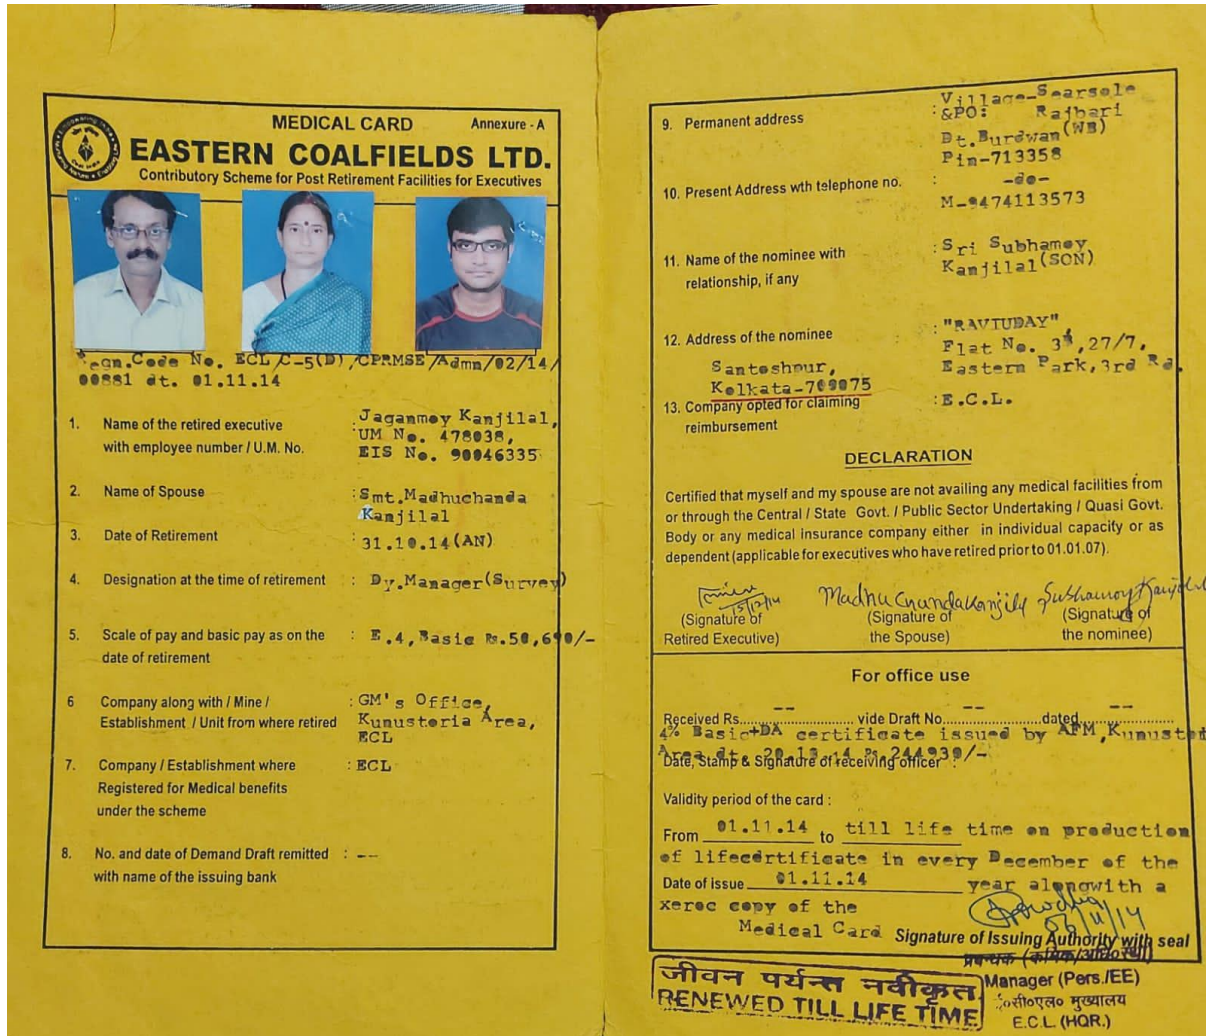 MEDICAL CARD Annexure - A
EASTERN COALFIELDS LTD.
Contributory Scheme for Post Retirement Facilities for Executives
egn.Code No. ECL/C-5(D)/CPRMSE/Admn/02/14/
00881 dt. 01.11.14
1. Name of the retired executive with employee number / U.M. No. : Jaganmoy Kanjilal,
UM No. 478038,
EIS No. 90046335
2. Name of Spouse : Smt.Madhuchanda
Kanjilal
3. Date of Retirement : 31.10.14(AN)
4. Designation at the time of retirement : Dy.Manager(Survey)
5. Scale of pay and basic pay as on the : E.4,Basic Rs.50,690/-
date of retirement
6 Company along with / Mine / : GM's Office,
Establishment / Unit from where retired Kunustoria Area,
ECL
7. Company / Establishment where : ECL
Registered for Medical benefits
under the scheme
8. No. and date of Demand Draft remitted : --
with name of the issuing bank
9. Permanent address : Village-Searsole
&PO: Rajbari
Dt.Burdwan(WB)
Pin-713358
10. Present Address wth telephone no. : -do-
M-9474113573
11. Name of the nominee with : Sri Subhamoy
relationship, if any Kanjilal(SON)
12. Address of the nominee : "RAVIUDAY"
Flat No. 27/7,
Santoshpur, Eastern Park,3rd Rd.
Kolkata-700075
13. Company opted for claiming : E.C.L.
reimbursement
DECLARATION
Certified that myself and my spouse are not availing any medical facilities from
or through the Central / State Govt. / Public Sector Undertaking / Quasi Govt.
Body or any medical insurance company either in individual capacity or as
dependent (applicable for executives who have retired prior to 01.01.07).
15/12/14 Madhuchanda Kanjilal Subhamoy Kanjilal
(Signature of (Signature of (Signature of
Retired Executive) the Spouse) the nominee)
For office use
Received Rs. -- vide Draft No. -- dated --
4% Basic+DA certificate issued by AFM,Kunusto
Area dt. Rs.244939/-
Date, Stamp & Signature of receiving officer :
Validity period of the card :
From 01.11.14 to till life time on production
of lifecdrtificate in every December of the
Date of issue 01.11.14 year alongwith a
xeroc copy of the
Medical Card
06/11/14
Signature of Issuing Authority with seal
प्रबन्धक (कार्मिक/अधि०स्था)
Manager (Pers./EE)
सी०एल० मुख्यालय
E.C.L. (HQR.)
जीवन पर्यन्त नवीकृत
RENEWED TILL LIFE TIME